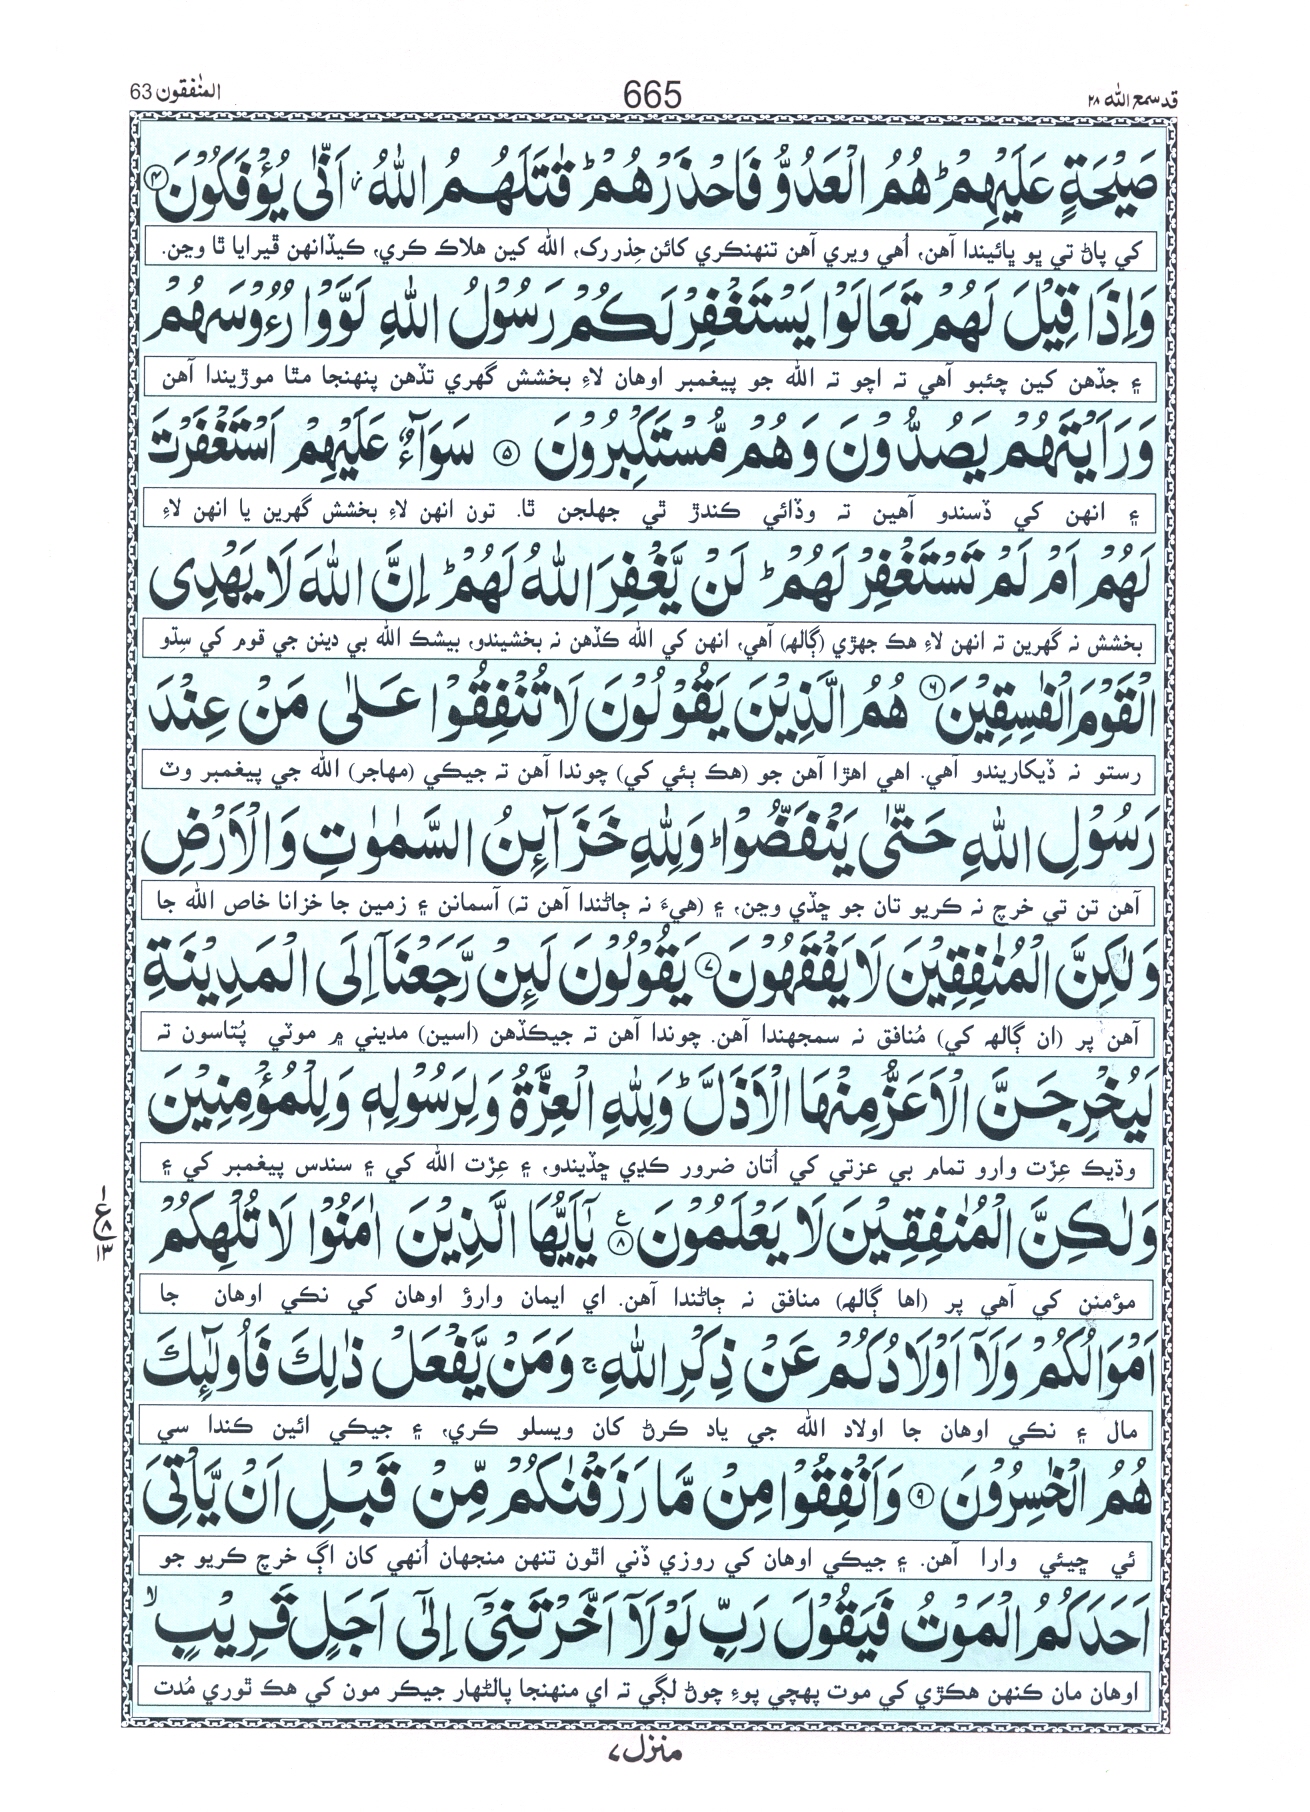 قد سمع الله ٢٨
665
المنٰفقون 63
صَيْحَةٍ عَلَيْهِمْ ؕ هُمُ الْعَدُوُّ فَاحْذَرْهُمْ ؕ قٰتَلَهُمُ اللّٰهُ ؗ اَنّٰى يُؤْفَكُوْنَ ﴿۴﴾
کي پاڻ تي ڀو ڀائيندا آهن، اُهي ويري آهن تنهنڪري کائن حِذر رک، الله کين هلاڪ ڪري، ڪيڏانهن ڦيرايا ٿا وڃن.
وَاِذَا قِيْلَ لَهُمْ تَعَالَوْا يَسْتَغْفِرْ لَكُمْ رَسُوْلُ اللّٰهِ لَوَّوْا رُءُوْسَهُمْ
۽ جڏهن کين چئبو آهي ته اچو ته الله جو پيغمبر اوهان لاءِ بخشش گهري تڏهن پنهنجا مٿا موڙيندا آهن
وَرَاَيْتَهُمْ يَصُدُّوْنَ وَهُمْ مُّسْتَكْبِرُوْنَ ﴿۵﴾ سَوَآءٌ عَلَيْهِمْ اَسْتَغْفَرْتَ
۽ انهن کي ڏسندو آهين ته وڏائي ڪندڙ ٿي جهلجن ٿا. تون انهن لاءِ بخشش گهرين يا انهن لاءِ
لَهُمْ اَمْ لَمْ تَسْتَغْفِرْ لَهُمْ ؕ لَنْ يَّغْفِرَ اللّٰهُ لَهُمْ ؕ اِنَّ اللّٰهَ لَا يَهْدِى
بخشش نه گهرين ته انهن لاءِ هڪ جهڙي (ڳالھ) آهي، انهن کي الله ڪڏهن نه بخشيندو، بيشڪ الله بي دينن جي قوم کي سِڌو
الْقَوْمَ الْفٰسِقِيْنَ ﴿۶﴾ هُمُ الَّذِيْنَ يَقُوْلُوْنَ لَا تُنْفِقُوْا عَلٰى مَنْ عِنْدَ
رستو نه ڏيکاريندو آهي. اهي اهڙا آهن جو (هڪ ٻئي کي) چوندا آهن ته جيڪي (مهاجر) الله جي پيغمبر وٽ
رَسُوْلِ اللّٰهِ حَتّٰى يَنْفَضُّوْا ؕ وَلِلّٰهِ خَزَآئِنُ السَّمٰوٰتِ وَالْاَرْضِ
آهن تن تي خرچ نه ڪريو تان جو ڇڏي وڃن، ۽ (هيءَ نه ڄاڻندا آهن ته) آسمانن ۽ زمين جا خزانا خاص الله جا
وَلٰكِنَّ الْمُنٰفِقِيْنَ لَا يَفْقَهُوْنَ ﴿۷﴾ يَقُوْلُوْنَ لَئِنْ رَّجَعْنَآ اِلَى الْمَدِيْنَةِ
آهن پر (ان ڳالھ کي) مُنافق نه سمجهندا آهن. چوندا آهن ته جيڪڏهن (اسين) مديني ۾ موٽي پُتاسون ته
لَيُخْرِجَنَّ الْاَعَزُّ مِنْهَا الْاَذَلَّ ؕ وَلِلّٰهِ الْعِزَّةُ وَلِرَسُوْلِهٖ وَلِلْمُؤْمِنِيْنَ
وڌيڪ عِزّت وارو تمام بي عزتي کي اُتان ضرور ڪڍي ڇڏيندو، ۽ عِزّت الله کي ۽ سندس پيغمبر کي ۽
وَلٰكِنَّ الْمُنٰفِقِيْنَ لَا يَعْلَمُوْنَ ﴿۸﴾ ع يٰٓاَيُّهَا الَّذِيْنَ اٰمَنُوْا لَا تُلْهِكُمْ
١ ع ٨ ١٣
مؤمنن کي آهي پر (اها ڳالھ) منافق نه ڄاڻندا آهن. اي ايمان وارؤ اوهان کي نڪي اوهان جا
اَمْوَالُكُمْ وَلَآ اَوْلَادُكُمْ عَنْ ذِكْرِ اللّٰهِ ۚ وَمَنْ يَّفْعَلْ ذٰلِكَ فَاُولٰٓئِكَ
مال ۽ نڪي اوهان جا اولاد الله جي ياد ڪرڻ کان ويسلو ڪري، ۽ جيڪي ائين ڪندا سي
هُمُ الْخٰسِرُوْنَ ﴿۹﴾ وَاَنْفِقُوْا مِنْ مَّا رَزَقْنٰكُمْ مِّنْ قَبْلِ اَنْ يَّاْتِىَ
ئي ڇيئي وارا آهن. ۽ جيڪي اوهان کي روزي ڏني اٿون تنهن منجهان اُنهي کان اڳ خرچ ڪريو جو
اَحَدَكُمُ الْمَوْتُ فَيَقُوْلَ رَبِّ لَوْلَآ اَخَّرْتَنِىْٓ اِلٰٓى اَجَلٍ قَرِيْبٍ ۙ
اوهان مان ڪنهن هڪڙي کي موت پهچي پوءِ چوڻ لڳي ته اي منهنجا پالڻهار جيڪر مون کي هڪ ٿوري مُدت
منزل ٧